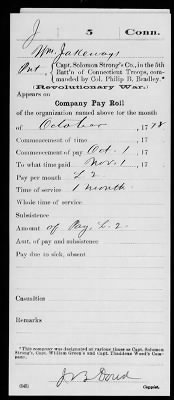 J 5 Conn.
Wm Jakeways
Pvt, Capt. Solomon Strong's Co., in the 5th
Batt'n of Connecticut Troops, com-
manded by Col. Philip B. Bradley.*
(Revolutionary War.)
Appears on
Company Pay Roll
of the organization named above for the month
of October, 1778.
Commencement of time, 17
Commencement of pay Oct. 1, 17
To what time paid Nov. 1, 17
Pay per month £2
Time of service 1 month
Whole time of service
Subsistence
Amount of Pay, £.2.
Amt. of pay and subsistence
Pay due to sick, absent
Casualties
Remarks
*This company was designated at various times as Capt. Solomon
Strong's, Capt. William Green's and Capt. Thaddeus Weed's Com-
pany.
(543) Copyist.